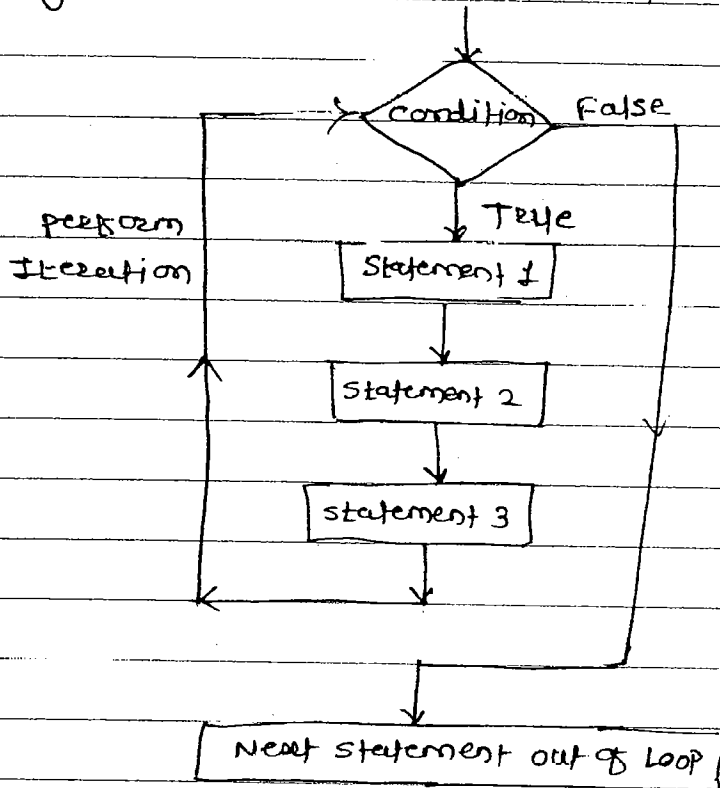 condition
False
True
perform
Iteration
Statement 1
Statement 2
Statement 3
Next statement out of Loop